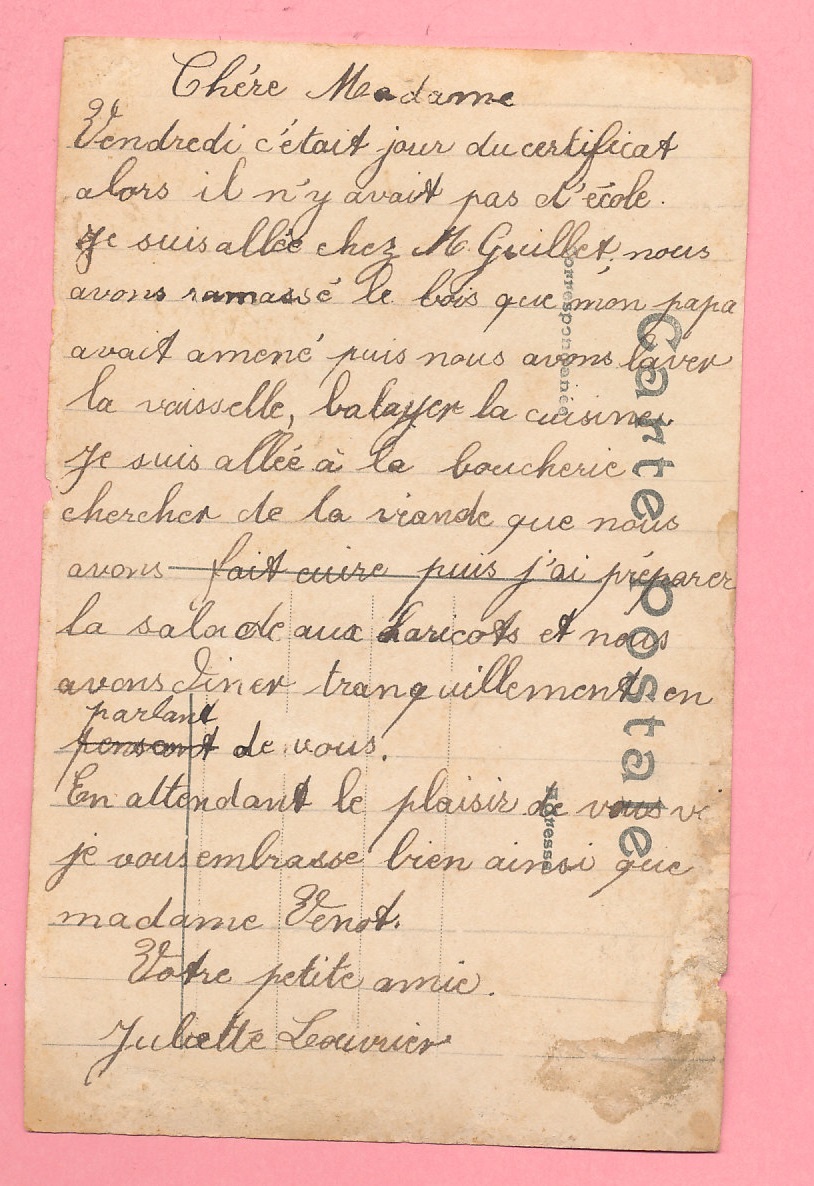 Chére Madame
Vendredi c'était jour du certificat
alors il n'y avait pas d'école.
Je suis allée chez M. Guillet, nous
avons ramassé le bois que mon papa
avait amené puis nous avons laver
la vaisselle, balayer la cuisine,
Je suis allée à la boucherie
chercher de la viande que nous
avons fait cuire puis j'ai préparer
la salade aux haricots et nous
avons diner tranquillement en
parlant
pensant de vous.
En attendant le plaisir de vous
je vous embrasse bien ainsi que
madame Venot.
Votre petite amie.
Juliette Louvrier
Carte postale
Correspondance
Adresse